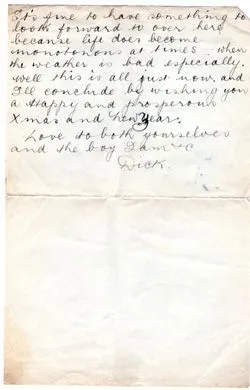 It's fine to have something to
look forward to over here
because life does become
monotonous at times - when
the weather is bad especially.
Well this is all just now, and
I'll conclude by wishing you
a Happy and prosperous
Xmas and New Year.
Love to both yourselves
and the boy I am &c
Dick.